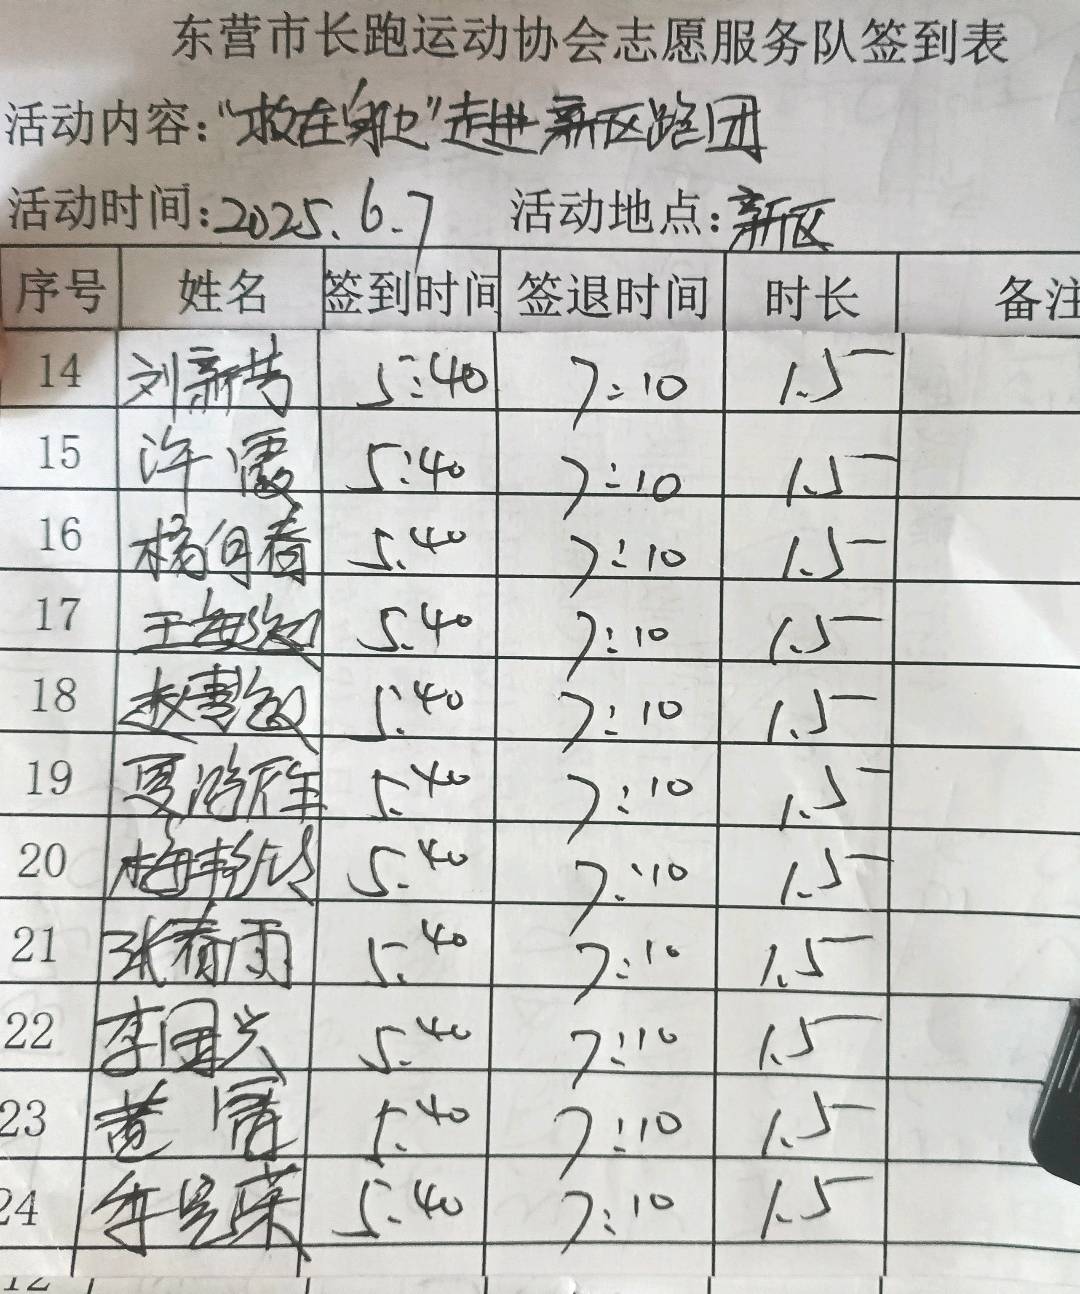 东营市长跑运动协会志愿服务队签到表
活动内容:“救在身边”走进新区跑团
活动时间:2025.6.7 活动地点:新区
序号 姓名 签到时间 签退时间 时长 备注
14 刘新芳 5:40 7:10 1.5
15 许霞 5:40 7:10 1.5
16 杨向春 5:40 7:10 1.5
17 王 5:40 7:10 1.5
18 赵 5:40 7:10 1.5
19 夏 5:40 7:10 1.5
20 梅 5:40 7:10 1.5
21 张春雨 5:40 7:10 1.5
22 李国兴 5:40 7:10 1.5
23 黄 5:40 7:10 1.5
24 5:40 7:10 1.5